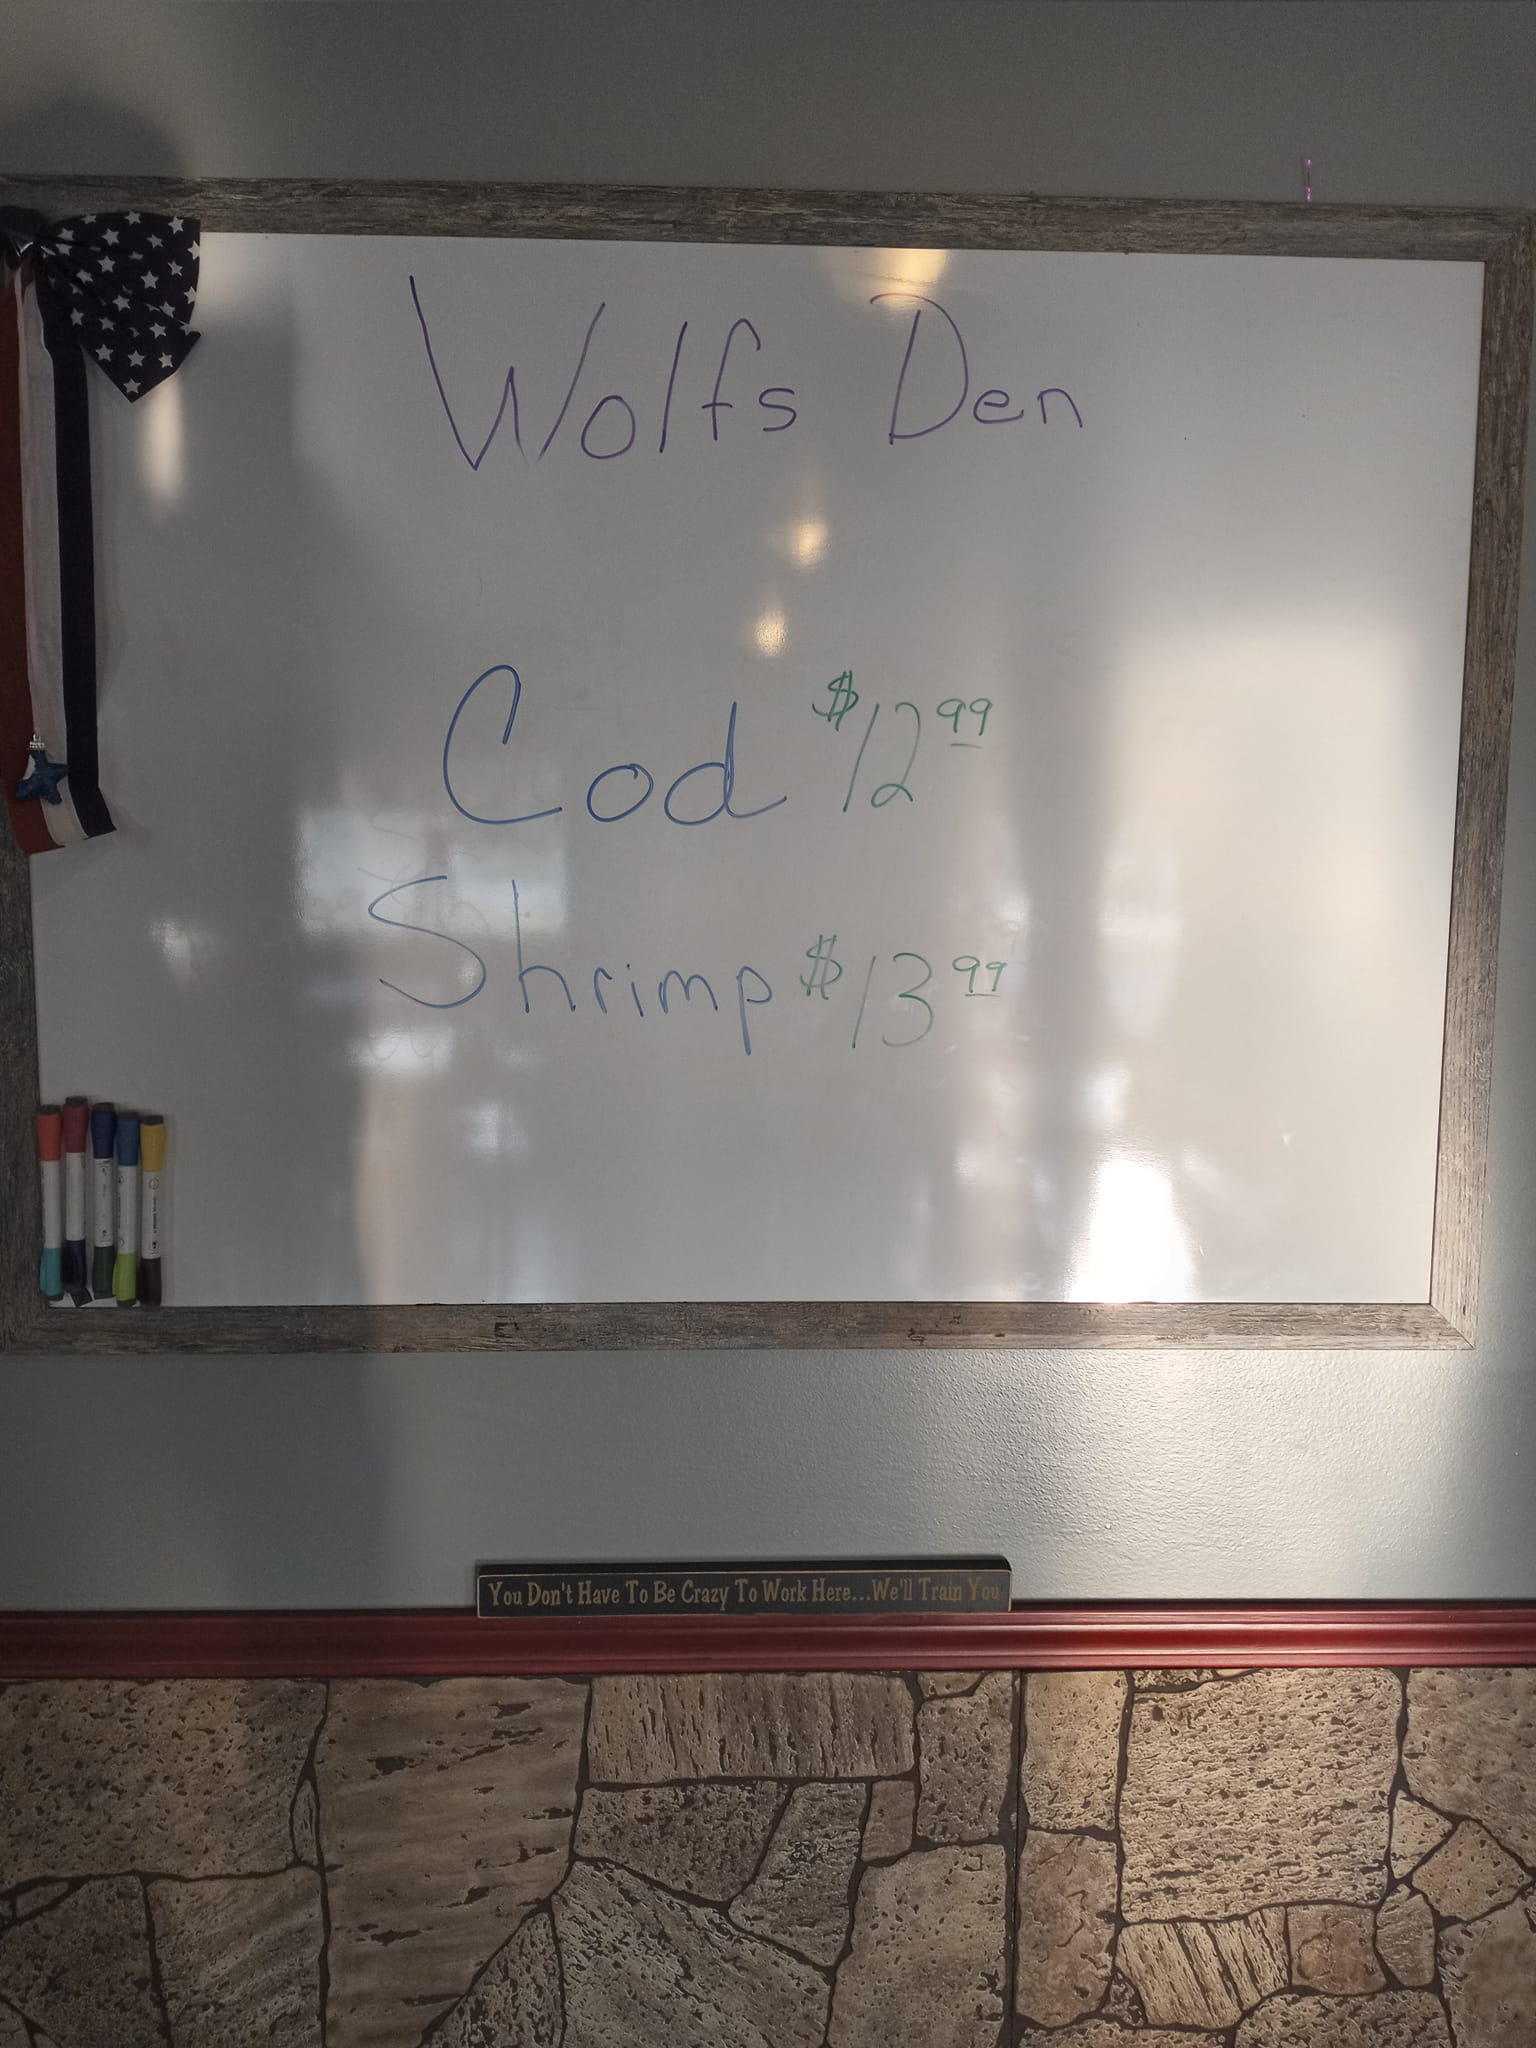 Wolfs Den
Cod $12 99
Shrimp $13 99
You Don't Have To Be Crazy To Work Here...We'll Train You